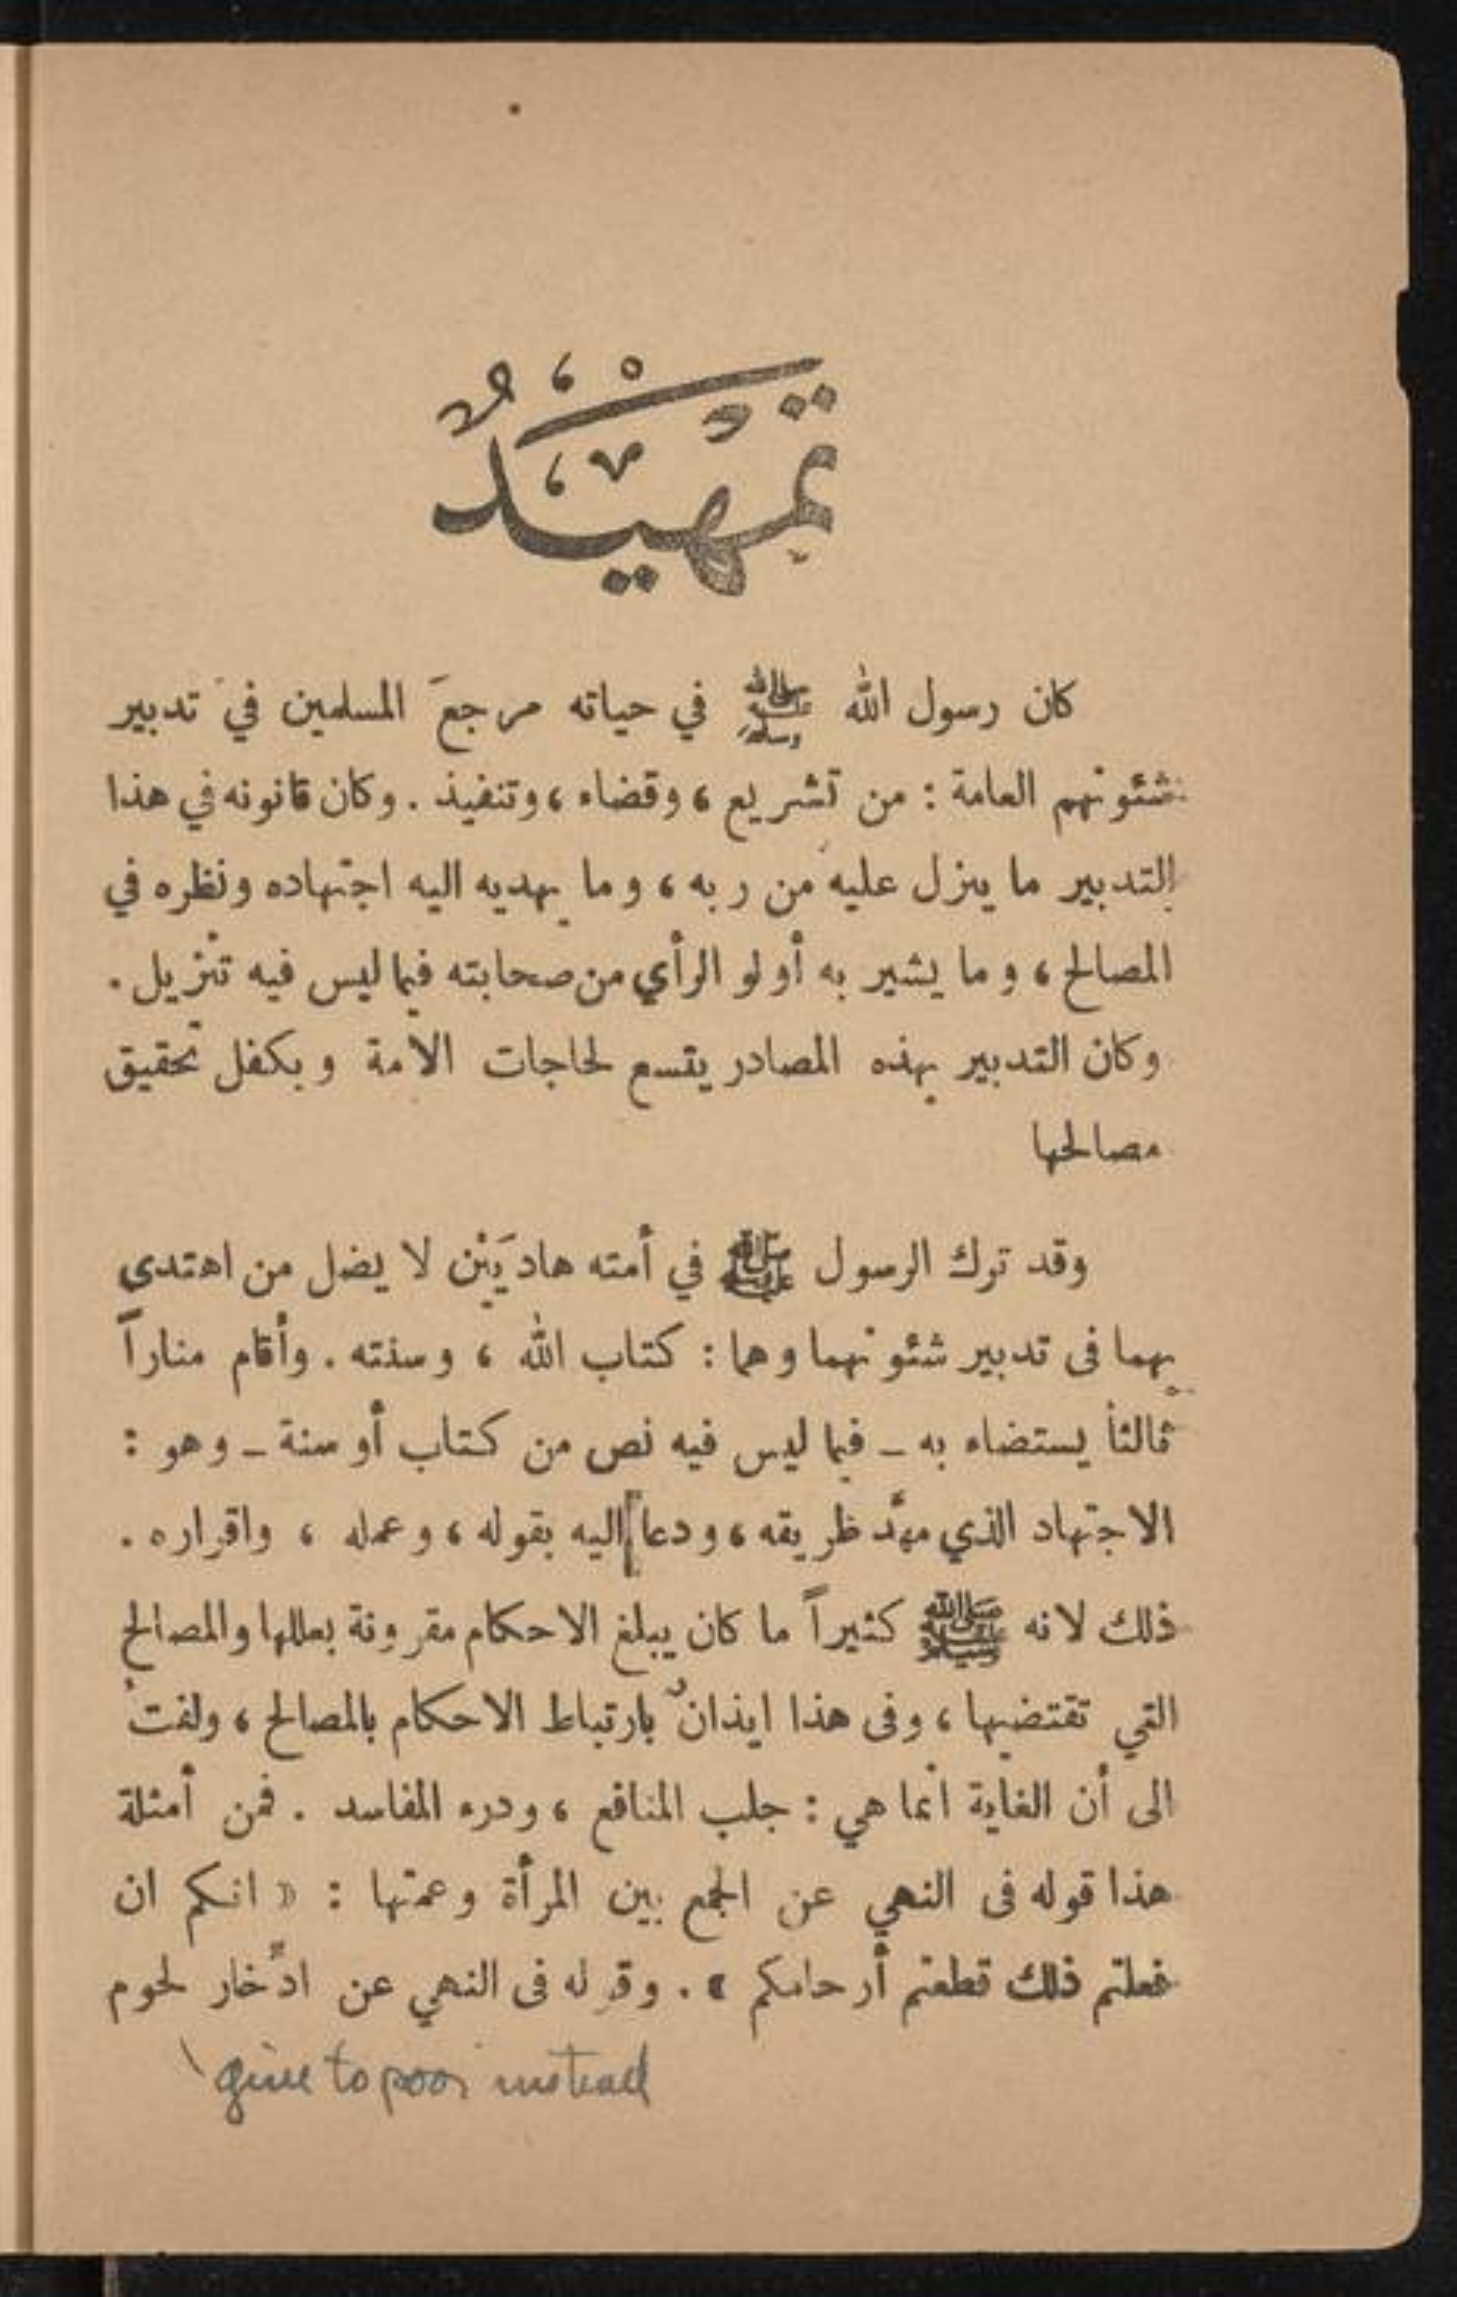 تمهيد
كان رسول الله ﷺ في حياته مرجعَ المسلمين في تدبير
شئونهم العامة : من تشريع ، وقضاء ، وتنفيذ . وكان قانونه في هذا
التدبير ما ينزل عليه من ربه ، وما يهديه اليه اجتهاده ونظره في
المصالح ، وما يشير به أولو الرأي من صحابته فيما ليس فيه تنزيل .
وكان التدبير بهذه المصادر يتسع لحاجات الأمة ويكفل تحقيق
مصالحها
وقد ترك الرسول ﷺ في أمته هاديَيْن لا يضل من اهتدى
بهما فى تدبير شئونهما وهما : كتاب الله ، وسنته . وأقام مناراً
ثالثاً يستضاء به ــ فيما ليس فيه نص من كتاب أو سنة ــ وهو :
الاجتهاد الذي مهَّد طريقه ، ودعا اليه بقوله ، وعمله ، واقراره .
ذلك لانه ﷺ كثيراً ما كان يبلغ الاحكام مقرونة بعللها والمصالح
التي تقتضيها ، وفى هذا ايذانٌ بارتباط الاحكام بالمصالح ، ولفتٌ
الى أن الغاية انما هي : جلب المنافع ، ودرء المفاسد . فمن أمثلة
هذا قوله فى النهي عن الجمع بين المرأة وعمتها : « انكم ان
فعلتم ذلك قطعتم أرحامكم » . وقوله فى النهي عن ادِّخار لحوم
give to poor instead